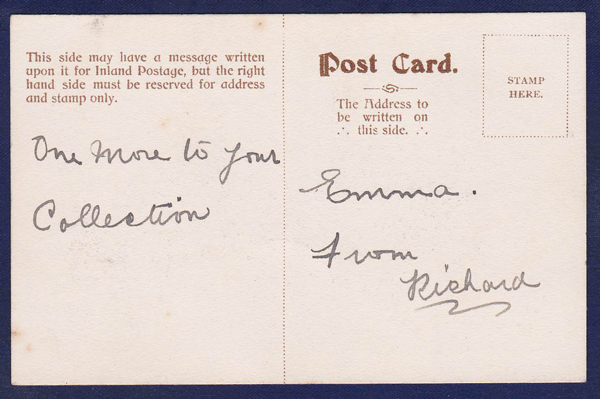 This side may have a message written
upon it for Inland Postage, but the right
hand side must be reserved for address
and stamp only.
One More to your
Collection
Post Card.
The Address to
be written on
.·. this side. .·.
STAMP
HERE.
Emma.
From
Richard